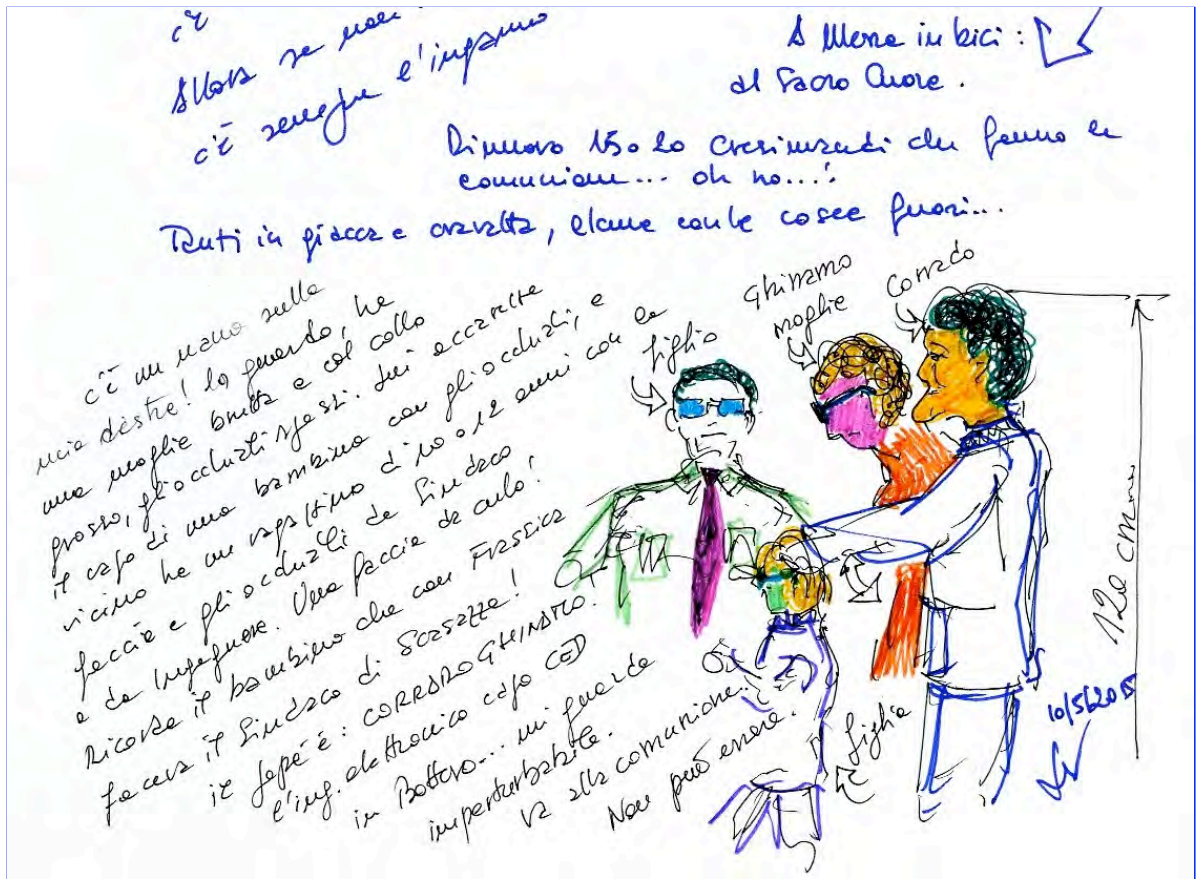 c'è
Allora se non
c'è sempre l'inganno
A Messa in bici:
al Sacro Cuore.
Rinnovo 15 o 20 cresimandi che fanno la
comunione... oh no...!
Tanti in giacca e cravatta, donne con le cosce fuori...
c'è un nano sulla
mia destra! lo guardo, ha
una moglie brutta e col collo
grosso, gli occhiali spessi. Lui accarezza
il capo di una bambina con gli occhiali, e
vicino ha un ragazzino di 10 o 12 anni con la
faccia e gli occhiali da Sindaco
e da Ingegnere. Una faccia da culo!
Ricorda il bambino che con Frassica
faceva il Sindaco di Scasazza!
il papé è: CORRADO GHINAMO.
l'ing. elettronico capo CED
in Bottero... mi guarda
imperturbabile.
va alla comunione.
Non può essere.
figlio
Ghinamo
moglie
Corrado
figlia
120 cm
10/5/2015